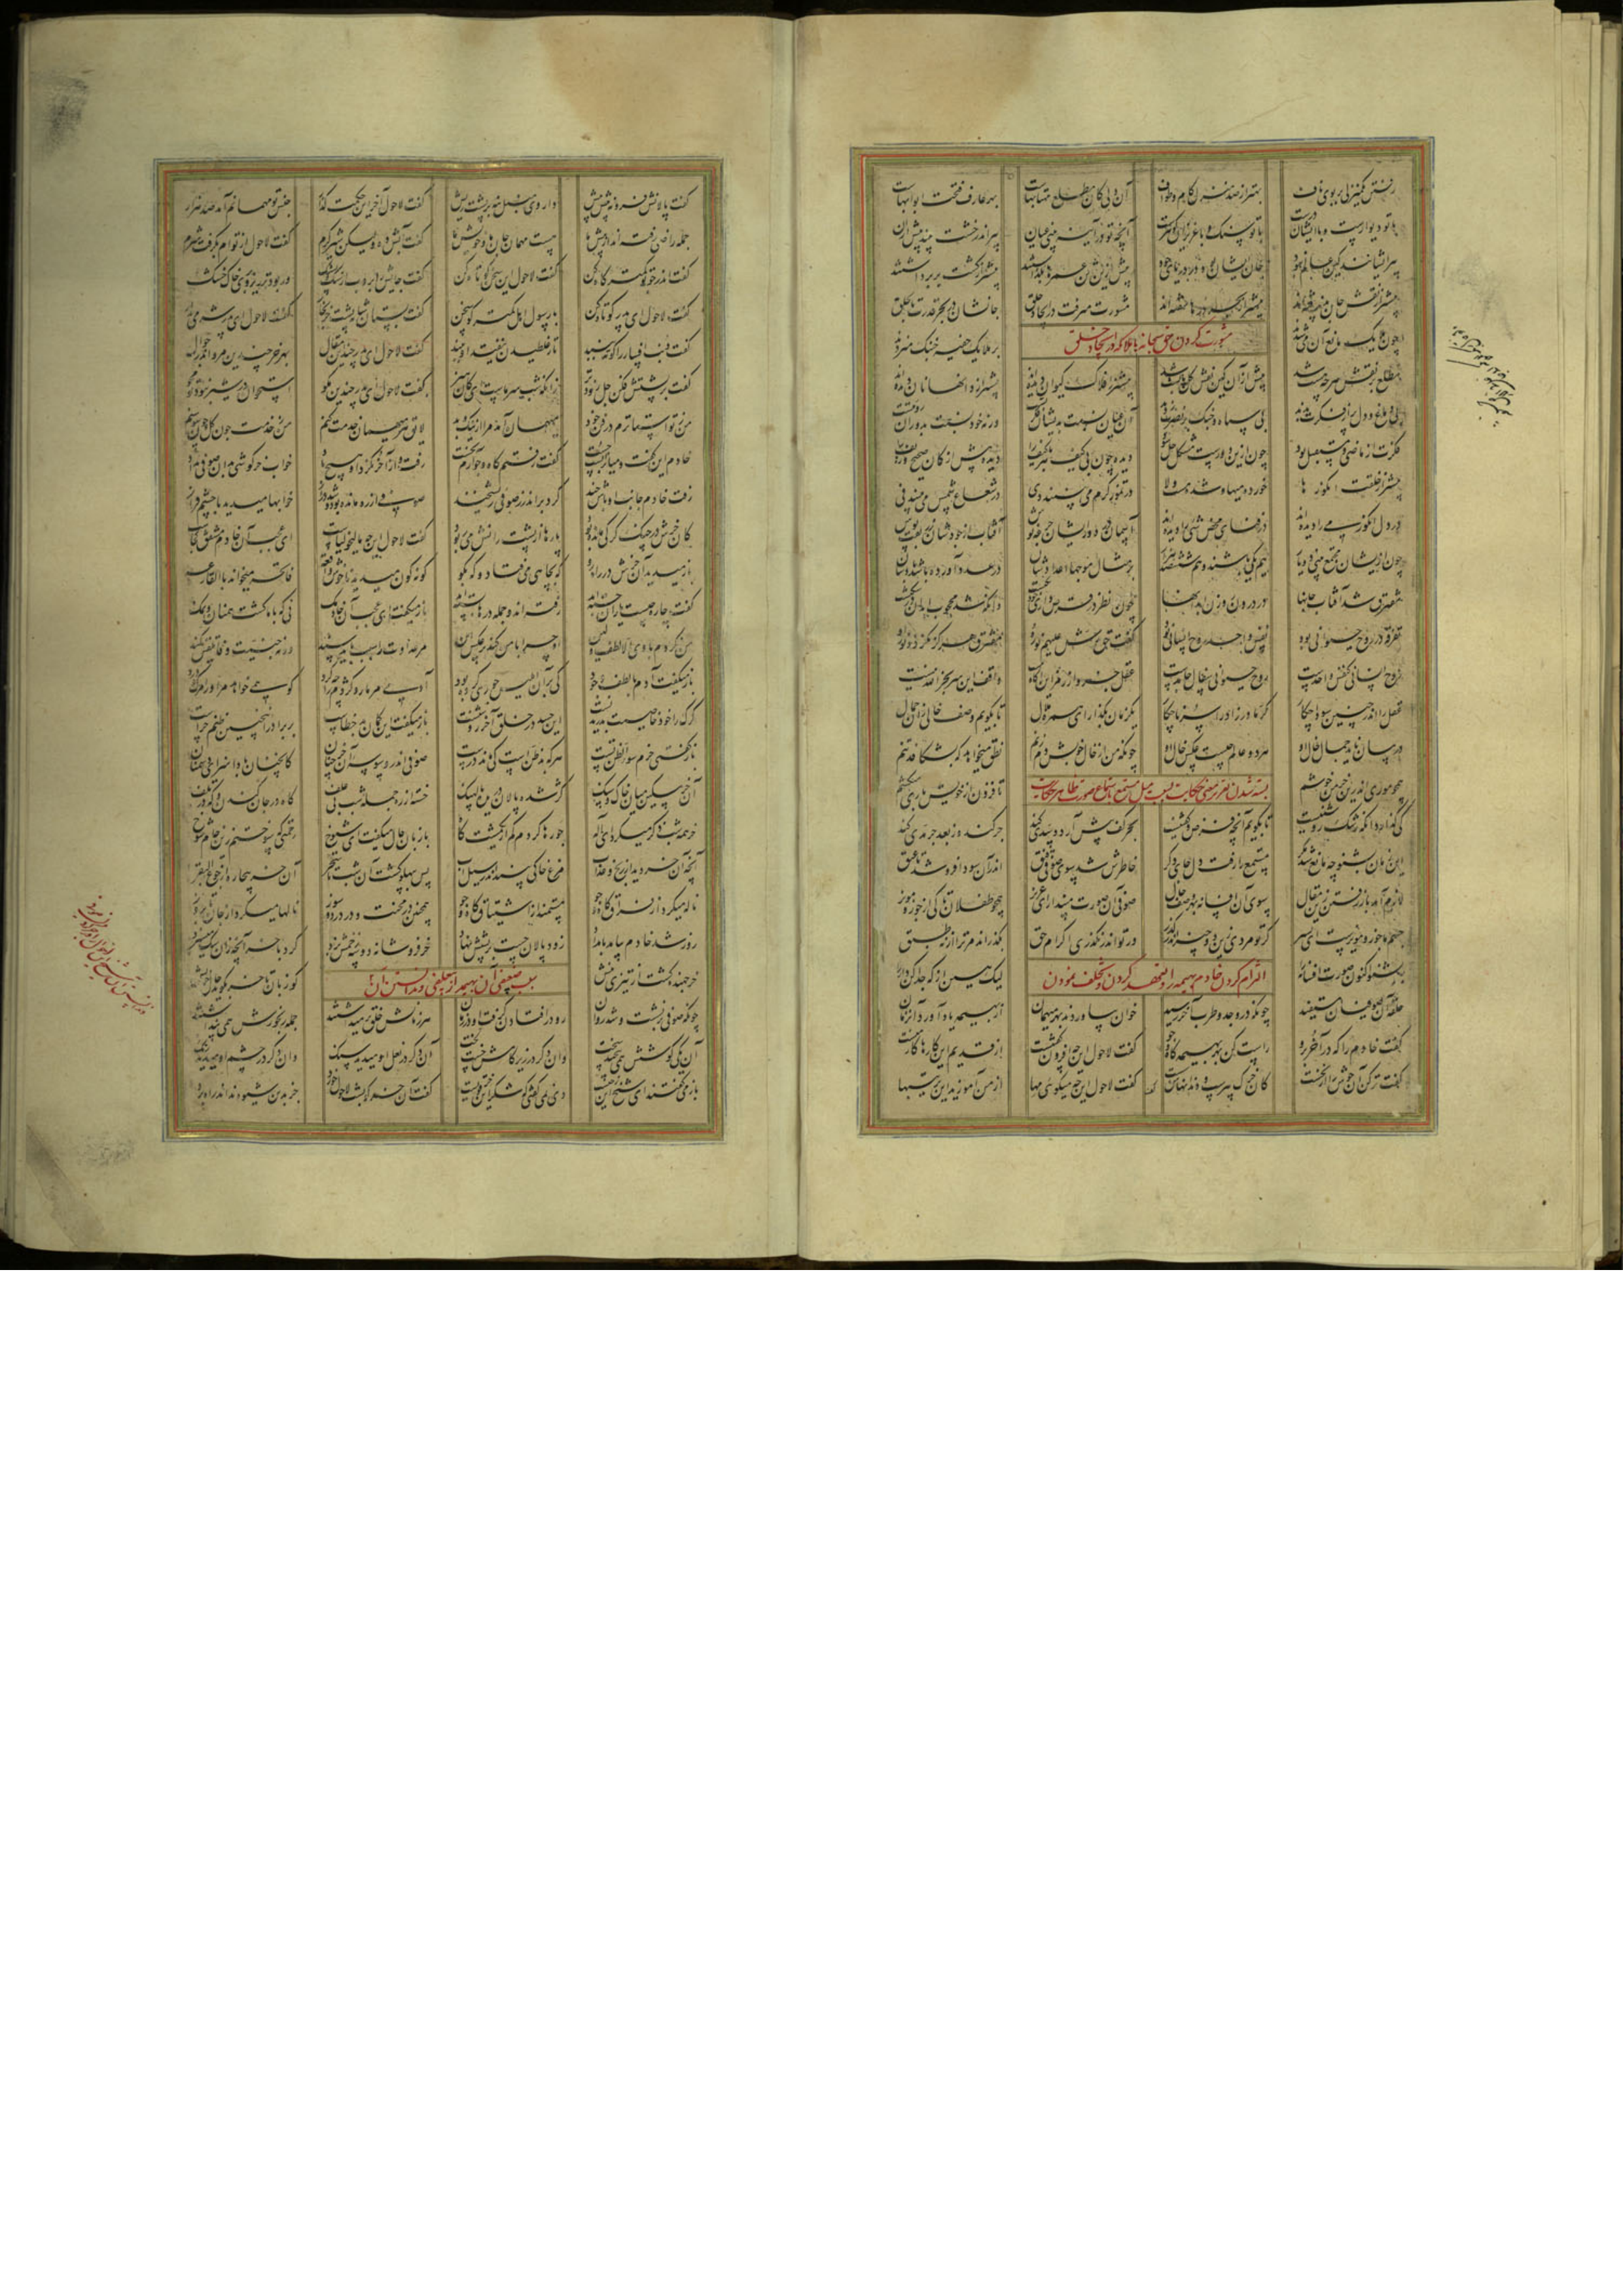 رفتن یک منزلی بر بوی ناف بهتر از صد منزل کام و طواف آن دلی کان مطلع مهتابهاست بهر عارف فتحت ابوابهاست
با تو دیوارست و با ایشان درست با تو سنگ و با عزیزان گوهرست آنچه تو در آینه بینی عیان پیر اندر خشت بیند پیش از آن
پیر ایشانند کین عالم نبود جان ایشان بود در دریای جود پیش ازین تن عمرها بگذاشتند پیشتر از کشت بر برداشتند
پیشتر از نقش جان پذرفته‌اند پیشتر از بحر درها سفته‌اند مشورت میرفت در ایجاد خلق جانشان در بحر قدرت تا بحلق
مشورت کردن حق سبحانه با ملائکه در ایجاد خلق
چون ملایک مانع آن می‌شدند بر ملایک خفیه خنبک میزدند
مطلع بر نقش هر چه هست شد پیش از آن کین نفس کل پابست شد پیشتر ز افلاک کیوان دیده‌اند پیشتر از دانها نان دیده‌اند
بی دماغ و دل پر از فکرت بدند بی سپاه و جنگ بر نصرت زدند آن عیان نسبت بدیشان فکرتست ورنه خود نسبت بدوران رؤیتست
فکرت از ماضی و مستقبل بود چون ازین دو رست مشکل حل شود دیده چون بی کیف هر با کیف را دیده پیش از کان صحیح و زیف را
پیشتر از خلقت انگورها خورده میها و در تموز گرم می‌بینند دی در شعاع شمس می‌بینند فی
در دل انگور می را دیده‌اند در فنای محض شی را دیده‌اند آسمان در دور ایشان جرعه نوش آفتاب از جودشان زربفت پوش
چون ازیشان مجتمع بینی دو یار هم یکی باشند و هم ششصد هزار بر مثال موجها اعدادشان در عدد آورده باشد بادشان
مفترق شد آفتاب جانها در درون روزن ابدانها چون نظر در قرص داری خود یکیست وانکه شد محجوب ابدان در شکیست
تفرقه در روح حیوانی بود نفس واحد روح انسانی بود گفت حق رش علیهم نوره مفترق هرگز نگردد نور او
روح انسانی کنفس واحدست روح حیوانی سفال جامدست عقل جزو از رمز این آگاه نیست واقف این سر بجز الله نیست
عقل را اندر چنین سودا چکار کر مادرزاد را سرنا چکار یکزمان بگذار ای همره ملال تا بگویم وصف خالی زان جمال
در بیان ناید جمال حال او هر دو عالم چیست عکس خال او چونکه من از خال خوبش دم زنم نطق میخواهد که بشکافد تنم
همچو موری اندرین خرمن خوشم تا فزون از خویش باری میکشم
بسته شدن تقریر معنی حکایت بسبب میل مستمع باستماع صورت ظاهر حکایت
کی گذارد آنکه رشک روشنیست تا بگویم آنچه فرض و گفتنیست بحر کف پیش آرد و سدی کند جر کند وز بعد جر مدی کند
این زمان بشنو چه مانع شد مگر مستمع را رفت دل جای دگر خاطرش شد سوی صوفی قنق اندر آن سودا فرو شد تا عنق
لازم آمد باز رفتن زین مقال سوی آن افسانه بهر وصف حال صوفی آن صورت مپندار ای عزیز همچو طفلان تا کی از جوز و مویز
جسم ما جوز و مویزست ای پسر گر تو مردی زین دو چیز اندر گذر ور تو اندر نگذری اکرام حق بگذراند مر ترا از نه طبق
بشنو اکنون صورت افسانه را لیک هین از که جدا کن دانه را
التزام کردن خادم بهیمه را و تعهد کردن و تخلف نمودن
حلقه آن صوفیان مستفید چونکه در وجد و طرب آخر رسید خوان بیاوردند بهر میهمان از بهیمه یاد آورد آن زمان
گفت خادم را که در آخر برو راست کن بهر بهیمه کاه و جو گفت لاحول این چه افزون گفتنست از قدیم این کارها کار منست
گفت تر کن آن جوش را از نخست کان خرک پیرست و دندانهاش سست گفت لاحول این چه میگویی مها از من آموزند این ترتیبها
گفت پالانش فرو نه پیش پیش داروی منبل بنه بر پشت ریش گفت لاحول آخر این حکمت گذار جنس تو مهمانم آمد صد هزار
جمله راضی رفته‌اند از پیش ما هست مهمان جان ما و خویش ما گفت آبش ده ولیکن شیر گرم گفت لاحول از توام بگرفت شرم
گفت اندر جو تو کمتر کاه کن گفت لاحول این سخن کوتاه کن گفت جایش را بروب از سنگ و پشک ور بود تر ریز بر وی خاک خشک
گفت لاحول ای پدر لاحول کن با رسول اهل کمتر گو سخن گفت بستان شانه پشت خر بخار گفت لاحول ای پدر شرمی بدار
گفت لاحول ای پدر چندین منال بهر خر چندین مرو اندر جوال
گفت بر پشتش فکن جل زودتر زانکه شب سرماست ای کان هنر گفت لاحول ای پدر چندین مگو استخوان در شیر نبود تو مجو
من ز تو استاترم در فن خود میهمان آید مرا از نیک و بد لایق هر میهمان خدمت کنم من ز خدمت چون گل و چون سوسنم
خادم این گفت و میان را بست چست گفت رفتم کاه و جو آرم نخست رفت و از آخر نکرد او هیچ یاد خواب خرگوشی بدان صوفی بداد
رفت خادم جانب اوباش چند کرد بر اندرز صوفی ریشخند صوفی از ره مانده بود و شد دراز خوابها میدید با چشم فراز
کان خرش در چنگ گرگی مانده بود پارها از پشت و رانش می‌ربود گفت لاحول این چه مالیخولیاست ای عجب آن خادم مشفق کجاست
باز میدید آن خرش در راه رو گه بچاهی میفتاد و گه بگو گونه گون میدید ناخوش واقعه فاتحه میخواند با القارعه
گفت چاره چیست یاران جسته‌اند رفته‌اند و جمله درها بسته‌اند باز میگفت ای عجب آن خادمک نی که با ما گشت هم نان و نمک
من نکردم با وی الا لطف و لین او چرا با من کند بر عکس کین هر عداوت را سبب باید سند ورنه جنسیت وفا تلقین کند
باز میگفت آدم با لطف و جود کی بر آن ابلیس جوری کرده بود آدمی مر مار و کژدم را چه کرد کو همی خواهد مر او را مرگ و درد
گرگ را خود خاصیت بدریدنست این حسد در خلق آخر روشنست باز میگفت این گمان بد خطاست بر برادر اینچنین ظنم چراست
باز گفتی حزم سوء الظن تست هر که بدظن نیست کی ماند درست صوفی اندر وسوسه آن خر چنان کانچنان بادا جزای دشمنان
آن خر مسکین میان خاک و سنگ کژ شده پالان دریده پالهنگ خسته از ره جمله شب بی علف گاه در جان کندن و گه در تلف
خر همه شب ذکر میکرد ای اله جو رها کردم کم از یک مشت کاه با زبان حال میگفت ای شیوخ رحمتی که سوختم زین خام شوخ
آنچه آن خر دید از رنج و عذاب مرغ خاکی بیند اندر سیل آب پس بپهلو گشت آن شب تا سحر آن خر بیچاره از جوع البقر
ناله میکرد از فراق کاه و جو مستمند از اشتیاق کاه و جو همچنین در محنت و در درد و سوز نالها میکرد از جان تا بروز
روز شد خادم بیامد بامداد زود پالان جست بر پشتش نهاد خر فروشانه دو سه زخمش بزد کرد با خر آنچه زان سگ میسزد
خر جهنده گشت از تیزی نیش کو زبان تا خر بگوید حال خویش
سبب ضعیفی آن بهیمه از بی‌علفی و ندانستن آن
چونکه صوفی برنشست و شد روان رو در افتادن گرفت او در زمان هر زمانش خلق برمیداشتند جمله رنجورش همی پنداشتند
آن یکی گوشش همی پیچید سخت وان دگر در زیر کامش جست لخت آن دگر در نعل او میدید سنگ وان دگر در چشم او میدید زنگ
باز میگفتند ای شیخ این ز چیست دی نمی گفتی که شکر این خر قویست گفت آن خر کو بشب لاحول خورد جز بدین شیوه نداند راه برد